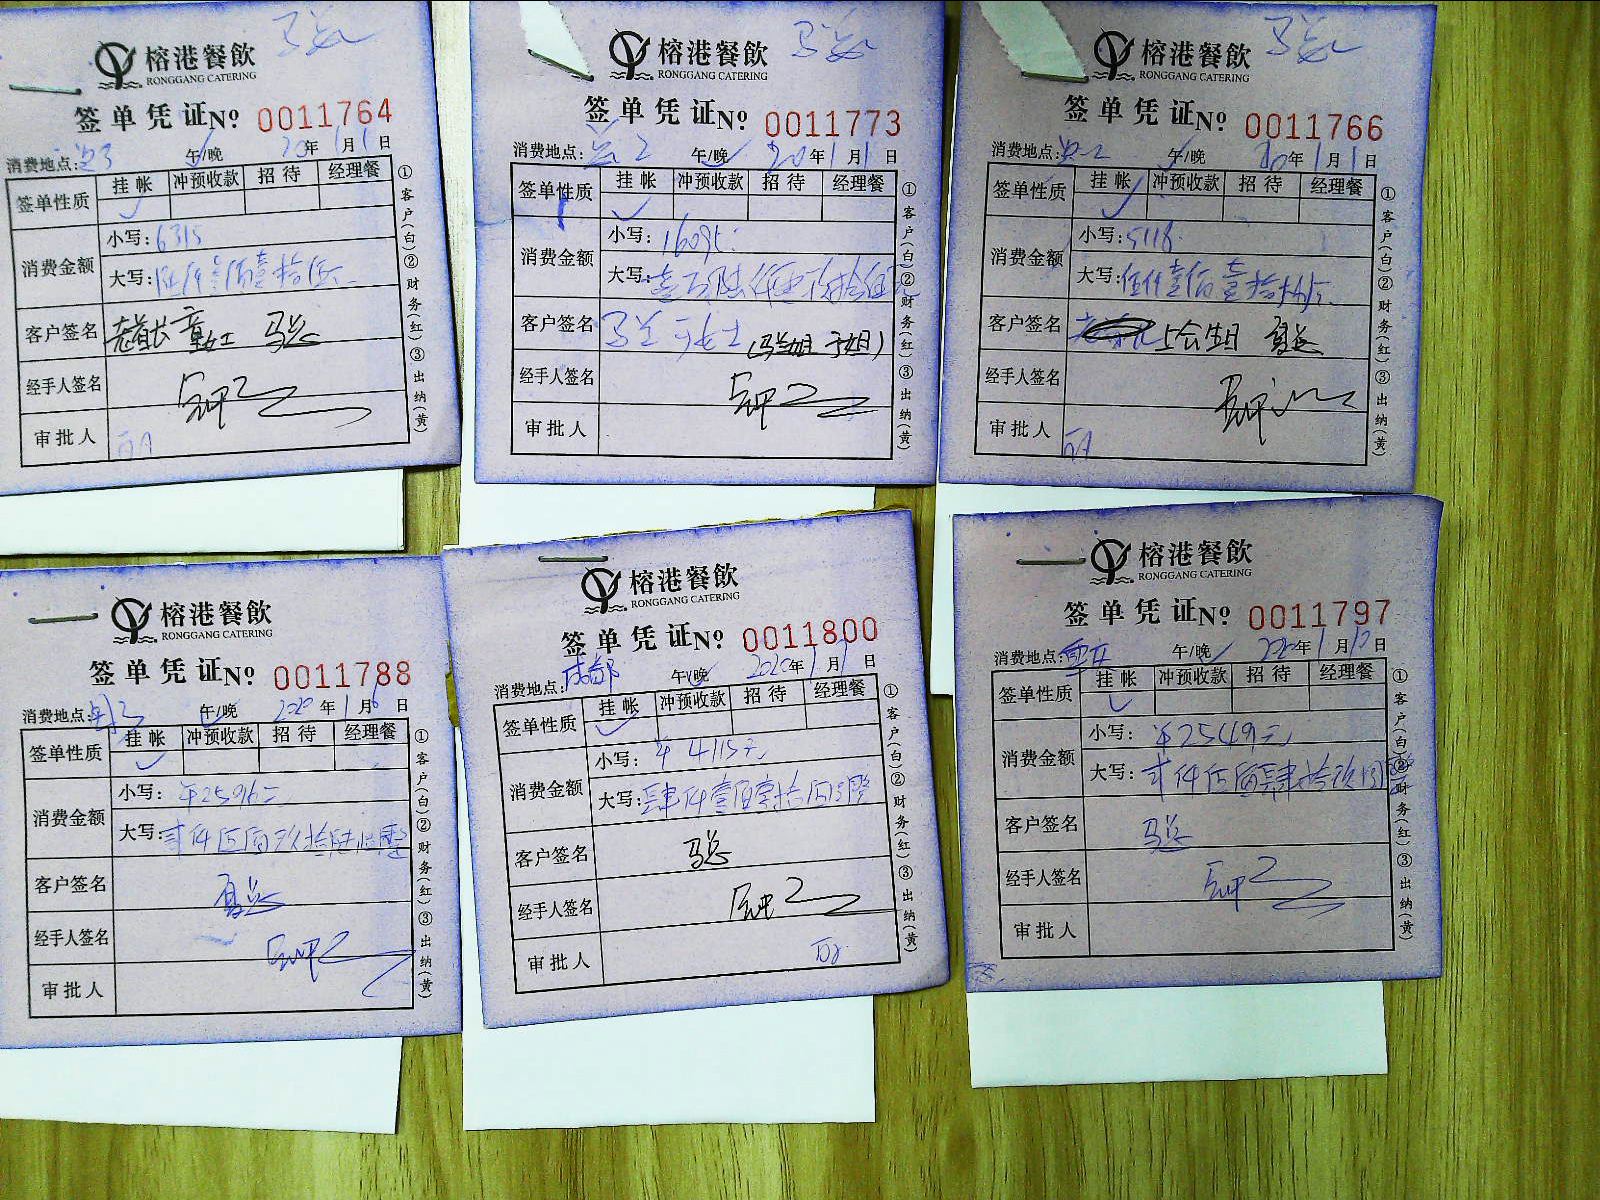 马总
榕港餐飲
RONGGANG CATERING
签单凭证№ 0011764
消费地点: 午/晚 20年1月1日
签单性质 挂帐 冲预收款 招待 经理餐
✓
消费金额 小写: 6315
大写: 陆仟叁佰壹拾伍
客户签名 童女士 马总
经手人签名
审批人
①客户(白)②财务(红)③出纳(黄)
马总
榕港餐飲
RONGGANG CATERING
签单凭证№ 0011773
消费地点: 午/晚 20年1月1日
签单性质 挂帐 冲预收款 招待 经理餐
✓
消费金额 小写: 16095.
大写: 壹万陆仟零玖拾伍元
客户签名 马总 (马兰姐 于姐)
经手人签名
审批人
①客户(白)②财务(红)③出纳(黄)
马总
榕港餐飲
RONGGANG CATERING
签单凭证№ 0011766
消费地点: 午/晚 20年1月1日
签单性质 挂帐 冲预收款 招待 经理餐
✓
消费金额 小写: 5118.
大写: 伍仟壹佰壹拾捌元
客户签名 夏总
经手人签名
审批人
①客户(白)②财务(红)③出纳(黄)
榕港餐飲
RONGGANG CATERING
签单凭证№ 0011788
消费地点: 午/晚 2020年1月6日
签单性质 挂帐 冲预收款 招待 经理餐
✓
消费金额 小写: ¥2596元
大写: 贰仟伍佰玖拾陆元整
客户签名 夏总
经手人签名
审批人
①客户(白)②财务(红)③出纳(黄)
榕港餐飲
RONGGANG CATERING
签单凭证№ 0011800
消费地点: 成都 午/晚 2020年1月 日
签单性质 挂帐 冲预收款 招待 经理餐
✓
消费金额 小写: ¥4115元
大写: 肆仟壹佰壹拾伍元整
客户签名 马总
经手人签名
审批人
①客户(白)②财务(红)③出纳(黄)
榕港餐飲
RONGGANG CATERING
签单凭证№ 0011797
消费地点: 午/晚 2020年1月10日
签单性质 挂帐 冲预收款 招待 经理餐
✓
消费金额 小写: ¥2549元
大写: 贰仟伍佰肆拾玖元
客户签名 马总
经手人签名
审批人
①客户(白)②财务(红)③出纳(黄)